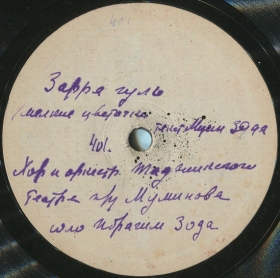 401.
Зарра гуль
(мелкие цветочки текст Мумин Зода
401.
Хор и оркестр Таджикского
театра п/у Муминова
соло Ибрагим Зода